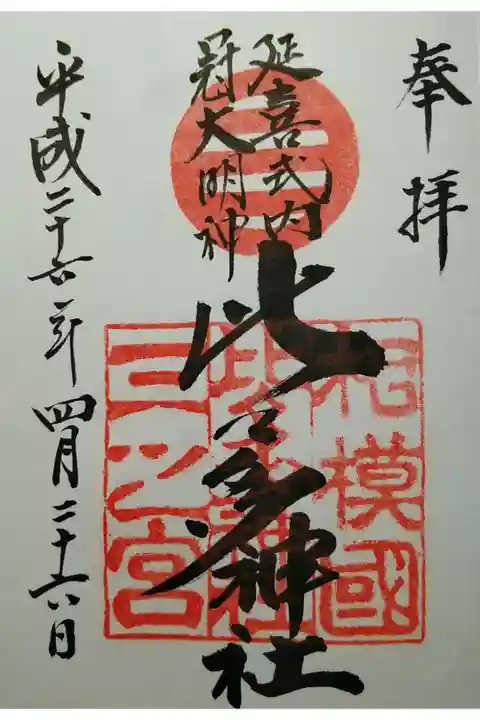 奉拝
延喜式内
冠大明神
三
比々多神社
相模國
比々多神社
三之宮
平成二十六年四月二十六日